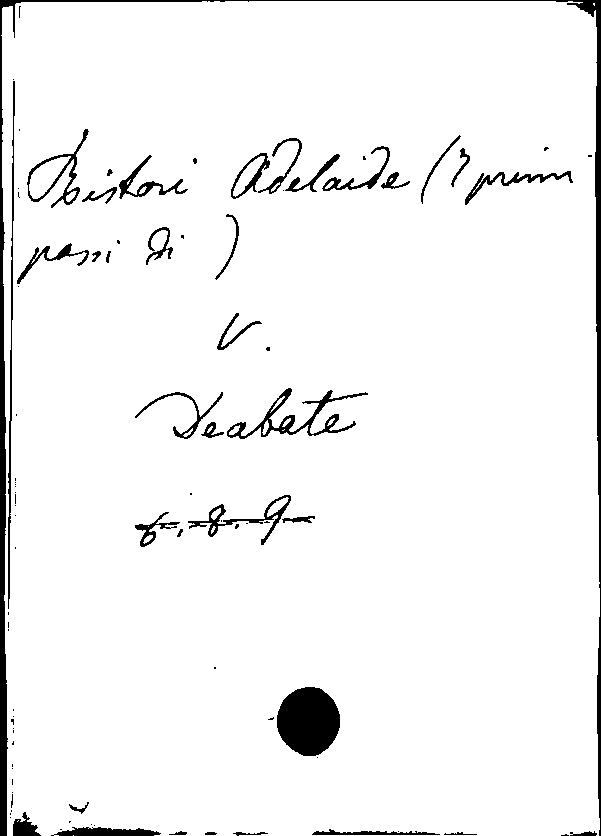 Ristori Adelaide (I primi
passi di )
V.
Deabate
6.8.9